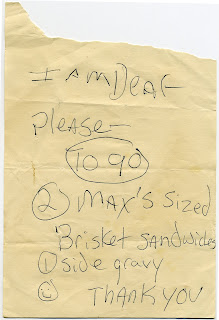 I AM Deaf
Please—
To go
② MAX's Sized
Brisket Sandwiches
① Side gravy
☺ THANK YOU